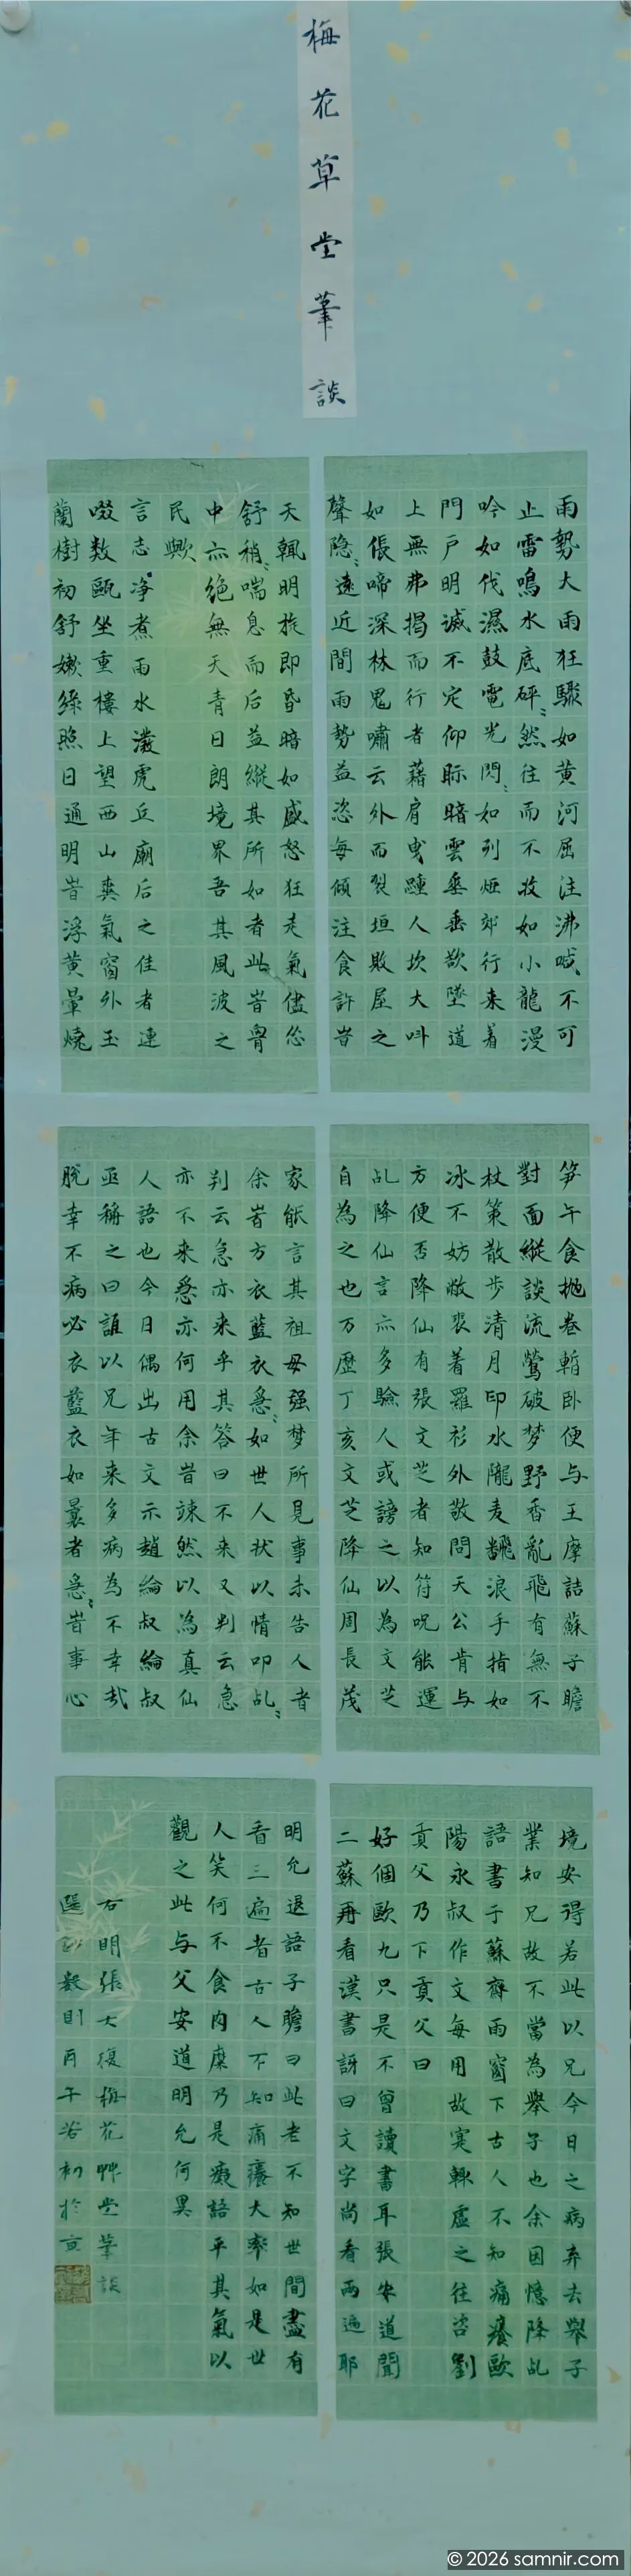 梅花草堂筆談
雨勢大雨狂驟如黄河屈注沸喊不可
止雷鳴水底砰〻然往而不收如小龍漫
吟如伐濕鼓電光閃〻如列炬郊行来着
門戸明滅不定仰眎暗雲垂垂欲墜道
上無弗揭而行者藉肩曳踵人坎大呌
如倀啼深林鬼嘯云外而裂垣敗屋之
聲隐〻遠近間雨勢益恣每傾注食許皆
天輒明旋即昏暗如盛怒狂走氣儘怂
舒稍〻喘息而后益縱其所如者此皆胷
中亦絶無天青日朗境界吾其風波之
民歟
言志净煮雨水潑虎丘廟后之佳者連
啜数甌坐重樓上望西山爽氣窗外玉
蘭樹初舒嫩綠照日通明皆浮黄暈燒
笋午食抛卷暫卧便与王摩詰蘇子瞻
對面縱談流鶯破梦野香亂飛有無不
杖策散步清月印水隴麦翻浪手指如
冰不妨敝裘着羅衫外敬問天公肯与
方便否降仙有張文芝者知符呪能運
乩降仙言亦多驗人或謗之以為文芝
自為之也万歷丁亥文芝降仙周長茂
家能言其祖母强梦所見事未告人者
余皆方衣藍衣急〻如世人狀以情叩乩〻
判云急亦来乎其答曰不来又判云急
亦不来急亦何用余皆竦然以為真仙
人語也今日偶出古文示趙綸叔綸叔
亟稱之曰誰以兄年来多病為不幸哉
脱幸不病必衣藍衣如曩者急〻皆事心
境安得若此以兄今日之病弃去舉子
業知兄故不當為舉子也余因憶降乩
語書于蘇齋雨窗下古人不知痛癢歐
陽永叔作文每用故寔輙虚之往咨劉
貢父乃下貢父曰
好個歐九只是不曾讀書耳張安道聞
二蘇再看漢書訝曰文字尚看兩遍耶
明允退語子瞻曰此老不知世間盡有
看三遍者古人不知痛癢大率如是世
人笑何不食肉糜乃是癡語平其氣以
觀之此与父安道明允何異
右明張大復梅花艸堂筆談
選數則丙午初於京
© 2026 samnir.com